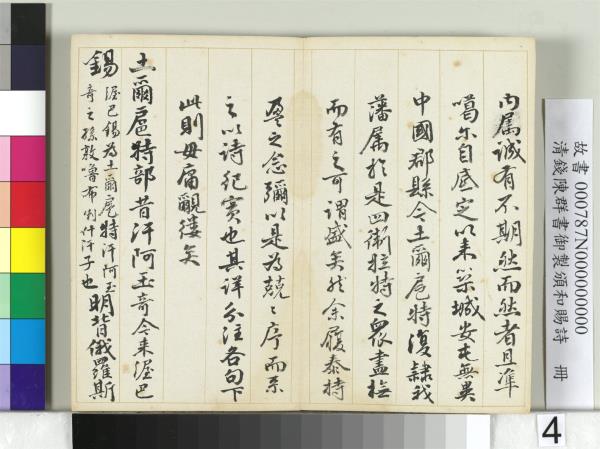 内属誠有不期然而然者且準
噶尔自底定以来築城安屯無異
中國郡縣今土爾扈特復隸我
藩属於是四衛拉特之眾盡撫
而有之可謂盛矣然余履泰持
盈之念彌以是為兢〻序而系
之以詩紀實也其詳分注各句下
此則毋庸覼縷矣
土爾扈特部昔汗阿玉奇今来渥巴
錫渥巴錫為土爾扈特汗阿玉奇之孫敦嚕布喇什汗子也明背俄羅斯
故書 000787N000000000
清錢陳群書御製頒和賜詩 冊
4